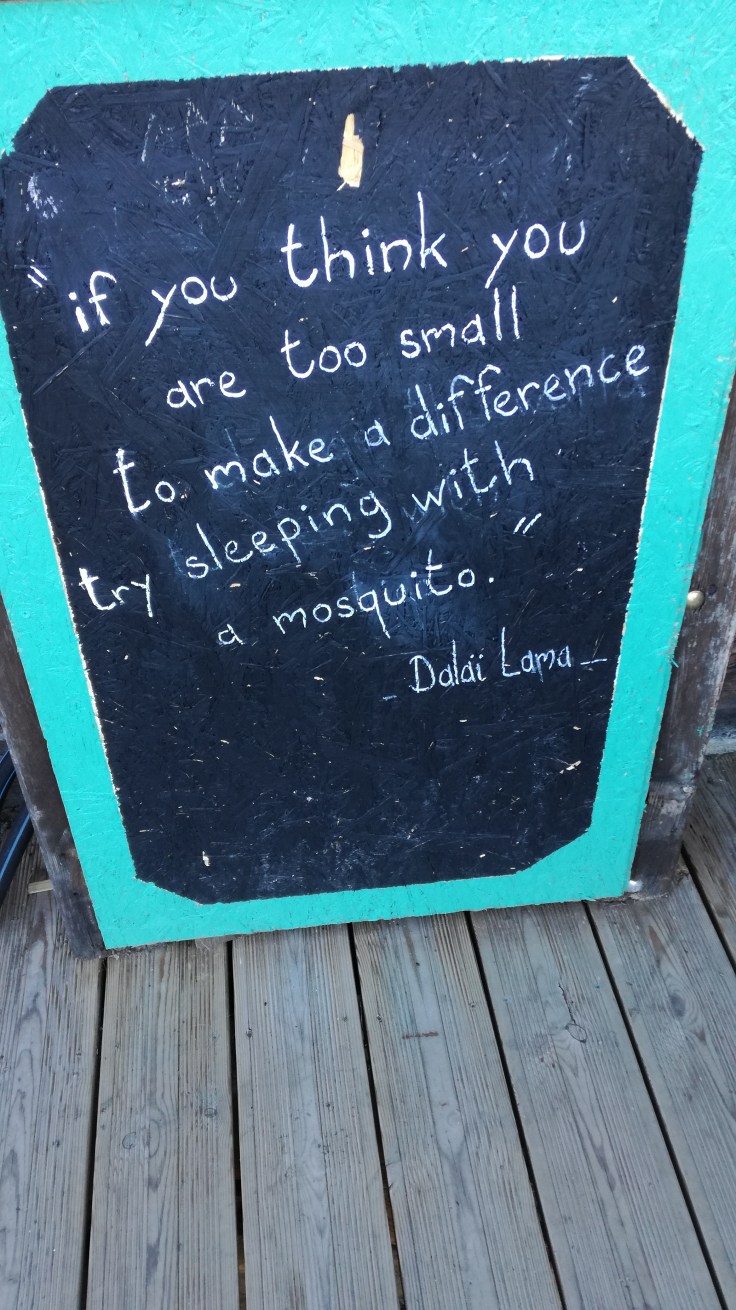 "if you think you
are too small
to make a difference
try sleeping with
a mosquito."
- Dalaï Lama -